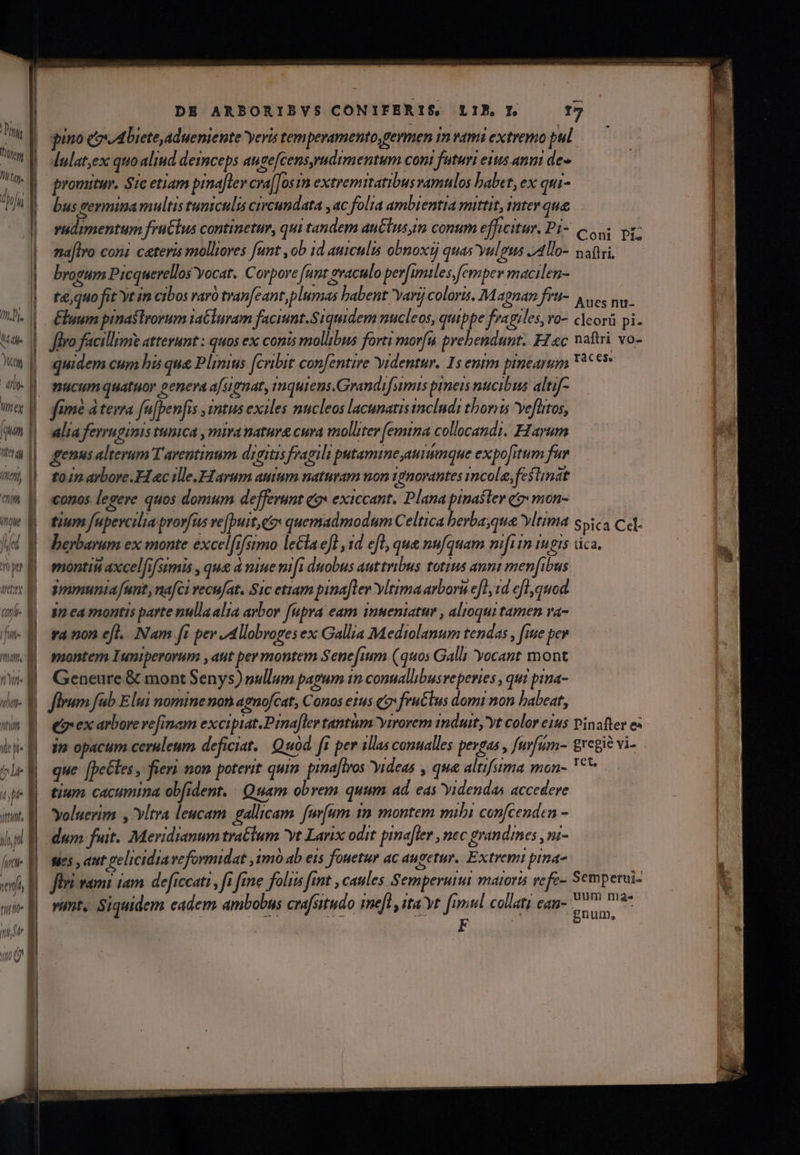 DE ARBORIBVS CONIFERIS, LIB. I. 17
pino & Abiete, adueniente veris temperamento, germen in rami extremo pul
lulat, ex quo aliud deinceps augescens, rudimentum coni futuri eius anni de-
promitur. Sic etiam pinaster crassos in extremitatibus ramulos habet, ex qui-
bus germina multis tuniculis circundata, ac folia ambientia mittit, inter quæ
rudimentum fructus continetur, qui tandem auctus, in conum efficitur. Pi-
nastro coni cæteris molliores sunt, ob id auiculis obnoxij quas vulgus Allo-
brogum Picquerellos vocat. Corpore sunt graculo persimiles, semper macilen-
tæ, quo fit vt in cibos rarò transeant, plumas habent varij coloris. Magnam fru-
ctuum pinastrorum iacturam faciunt. Siquidem nucleos, quippe fragiles, ro-
stro facillimè atterunt: quos ex conis mollibus forti morsu prehendunt. Hæc
quidem cum his quæ Plinius scribit consentire videntur. Is enim pinearum
nucum quatuor genera assignat, inquiens. Grandissimis pineis nucibus altis-
simè à terra suspensis, intus exiles nucleos lacunatis includi thoris vestitos,
alia ferruginis tunica, mira naturæ cura molliter semina collocandi. Harum
genus alterum Tarentinum digitis fragili putamine, auiúmque exposítum fur
to in arbore. Hæc ille. Harum auium naturam non ignorantes incolæ, festinãt
conos legere quos domum defferunt & exiccant. Plana pinaster & mon-
tium supercilia prorsus respuit, & quemadmodum Celtica herba, quæ vltima
herbarum ex monte excelsissimo lecta est, id est, quæ nusquam nisi in iugis
montiũ axcelsissimis, quæ à niue nisi duobus auttribus totius anni mensibus
immunia sunt, nasci recusat. Sic etiam pinaster vltima arborũ est, id est, quod
in ea montis parte nulla alia arbor supra eam inueniatur, alioqui tamen ra-
ra non est. Nam si per Allobroges ex Gallia Mediolanum tendas, siue per
montem Iuniperorum, aut per montem Senesium (quos Galli vocant mont
Geneure & mont Senys) nullum pagum in conuallibus reperies, qui pina-
strum sub Elui nomine non agnoscat, Conos eius & fructus domi non habeat,
& ex arbore resinam excipiat. Pinaster tantùm virorem induit, vt color eius
in opacum ceruleum deficiat. Quòd si per illas conualles pergas, sursúm-
que spectes, fieri non poterit quin pinastros videas, quæ altissima mon-
tium cacumina obsident. Quam obrem quum ad eas videndas accedere
voluerim, vltra leucam gallicam sursum in montem mihi conscenden-
dum fuit. Meridianum tractum vt Larix odit pinaster, nec grandines, ni-
ues, aut gelicidia reformidat, imò ab eis fouetur ac augetur. Extremi pina-
stri rami iam deficcati, si sine foliis sint, caules Semperuiui maioris refe-
runt. Siquidem eadem ambobus crassitudo inest, ita vt simul collati ean-
F
Coni Pi-
nastri.
Aues nu-
cleorũ pi-
nastri vo-
races.
Spica Cel-
tica.
Pinaster e-
gregiè vi-
ret.
Semperui-
uum ma-
gnum,